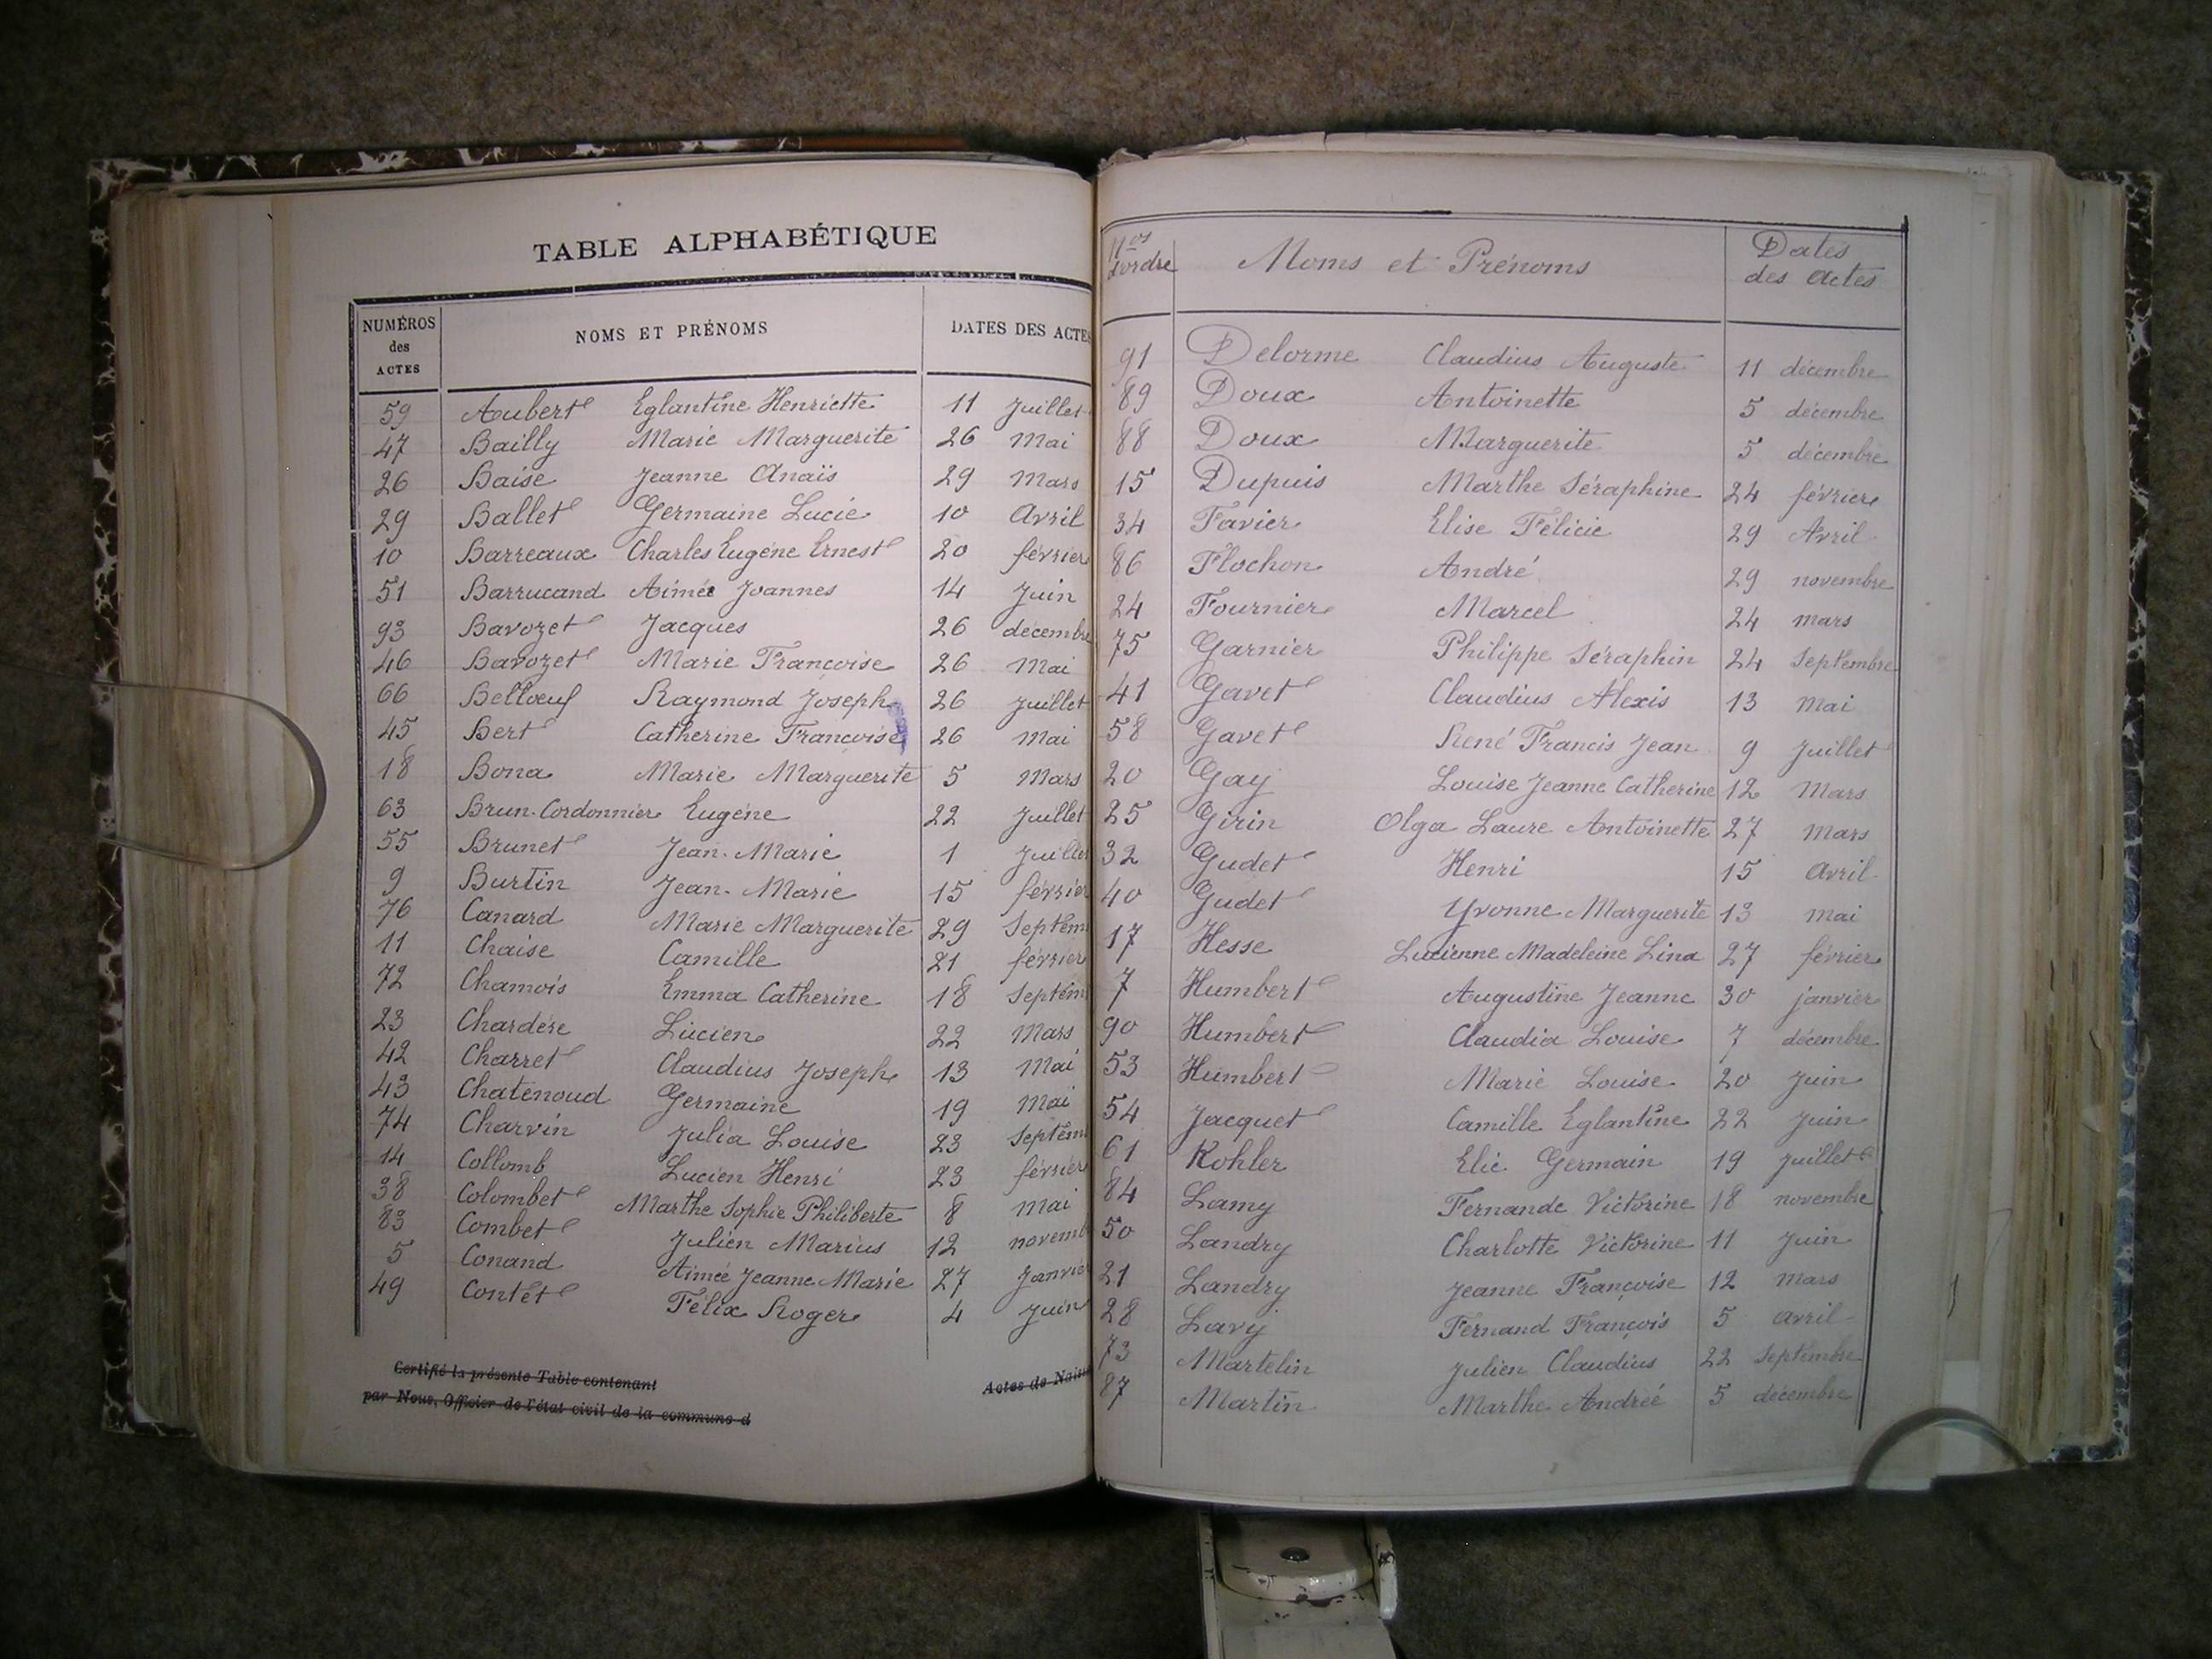 TABLE ALPHABÉTIQUE
NUMÉROS des ACTES NOMS ET PRÉNOMS DATES DES ACTES
59 Aubert Eglantine Henriette 11 Juillet
47 Bailly Marie Marguerite 26 Mai
26 Baise Jeanne Anaïs 29 Mars
29 Ballet Germaine Lucie 10 Avril
10 Barreaux Charles Eugène Ernest 20 février
51 Barrucand Aimée Joannes 14 Juin
93 Bavozet Jacques 26 décembre
46 Bavozet Marie Françoise 26 Mai
66 Belloeuf Raymond Joseph 26 Juillet
45 Bert Catherine Françoise 26 Mai
18 Bona Marie Marguerite 5 Mars
63 Brun-Cordonnier Eugène 22 Juillet
55 Brunet Jean-Marie 1 Juillet
9 Burtin Jean-Marie 15 février
76 Canard Marie Marguerite 29 Septem
11 Chaise Camille 21 février
72 Chamois Emma Catherine 18 Septem
23 Chardère Lucien 22 Mars
42 Charret Claudius Joseph 13 Mai
43 Chatenoud Germaine 19 Mai
74 Charvin Julia Louise 23 Septem
14 Collomb Lucien Henri 23 février
38 Colombet Marthe Sophie Philiberte 8 Mai
83 Combet Julien Marius 12 novemb
5 Conand Aimée Jeanne Marie 27 Janvier
49 Contet Félix Roger 4 Juin
Certifié la présente Table contenant Actes de Nais
par Nous, Officier de l'état civil de la commune d
Nos d'ordre Noms et Prénoms Dates des actes
91 Delorme Claudius Auguste 11 décembre
89 Doux Antoinette 5 décembre
88 Doux Marguerite 5 décembre
15 Dupuis Marthe Séraphine 24 février
34 Favier Elise Félicie 29 Avril
86 Flochon André 29 novembre
24 Fournier Marcel 24 mars
75 Garnier Philippe Séraphin 24 Septembre
41 Gavet Claudius Alexis 13 Mai
58 Gavet René Francis Jean 9 Juillet
20 Gay Louise Jeanne Catherine 12 Mars
25 Girin Olga Laure Antoinette 27 Mars
32 Gudet Henri 15 Avril
40 Gudet Yvonne Marguerite 13 Mai
17 Hesse Lucienne Madeleine Lina 27 février
7 Humbert Augustine Jeanne 30 janvier
90 Humbert Claudia Louise 7 décembre
53 Humbert Marie Louise 20 Juin
54 Jacquet Camille Eglantine 22 Juin
61 Kohler Elie Germain 19 Juillet
84 Lamy Fernande Victorine 18 novembre
50 Landry Charlotte Victorine 11 Juin
21 Landry Jeanne Françoise 12 Mars
28 Lavy Fernand François 5 Avril
73 Martelin Julien Claudius 22 Septembre
87 Martin Marthe Andréé 5 décembre